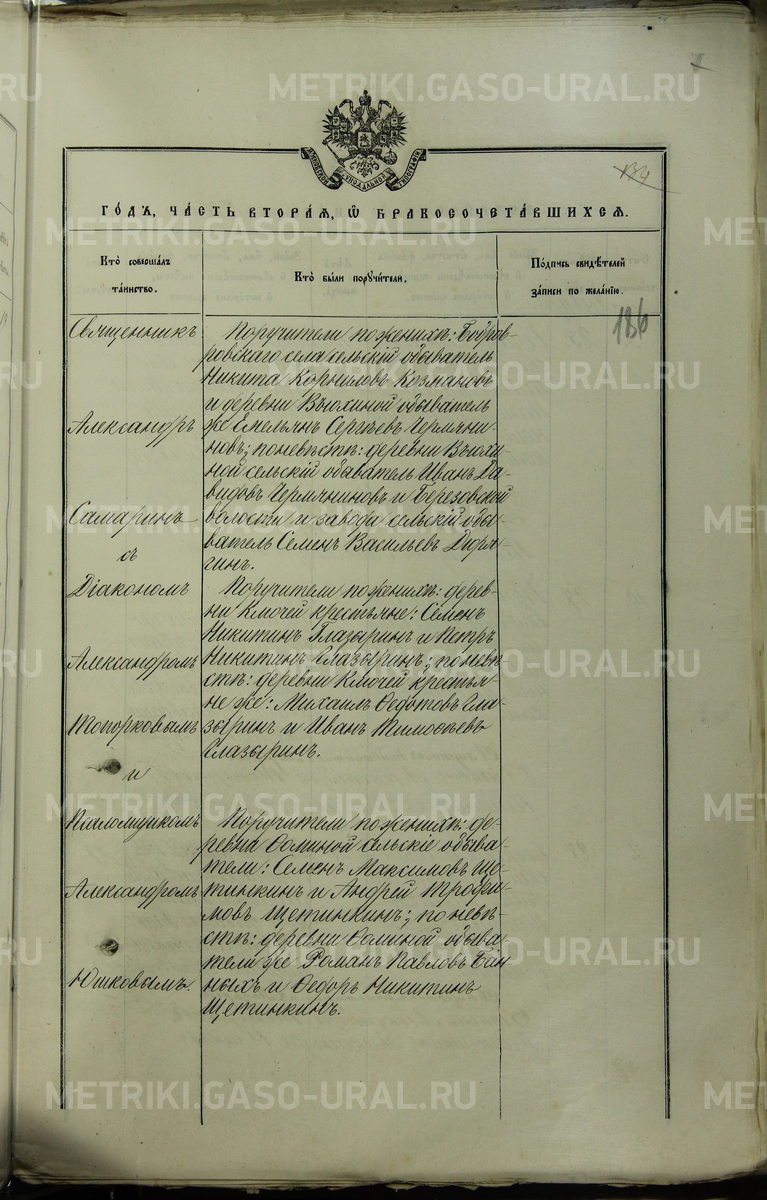 134
ГО́ДЪ, ЧА́СТЬ ВТОРА́Я, Ѡ҆ БРАКОСОЧЕТА́ВШИХСЯ.
Кто̀ соверша́лъ
та́инство.
Кто̀ бы́ли поручи́тели.
По́дпись свидѣ́телей
за́писи по жела́нїю.
136
Священникъ
Александръ
Самаринъ
съ
Діакономъ
Александромъ
Топорковымъ
и
Псаломщикомъ
Александромъ
Юшковымъ.
Поручители по женихѣ: Бобров-
ровскаго села сельскій обыватель
Никита Корниловъ Козмановъ
и деревни Вьюхиной обыватель
же Емельянъ Сергѣевъ Чермяни-
новъ; по невѣстѣ: деревни Вьюхи-
ной сельскій обаватель Иванъ Да-
видовъ Чермяниновъ и Березовской
волости и завода сельскій обы-
ватель Семенъ Васильевъ Дюря-
гинъ.
Поручители по женихѣ: дерев-
ни Ключей крестьяне: Семенъ
Никитинъ Глазыринъ и Петръ
Никитинъ Глазыринъ; по невѣ-
стѣ: деревни Ключей крестья-
не же: Михаилъ Ѳедотовъ Гла-
зыринъ и Иванъ Тимоѳеевъ
Глазыринъ.
Поручители по женихѣ: де-
ревни Ѳоминой сельскіе обыва-
тели: Семенъ Максимовъ Ще-
тинкинъ и Андрей Трофи-
мовъ Щетинкинъ; по невѣ-
стѣ: деревни Ѳоминой обыва-
тели же Романъ Павловъ Бан-
ныхъ и Ѳедоръ Никитинъ
Щетинкинъ.
METRIKI.GASO-URAL.RU